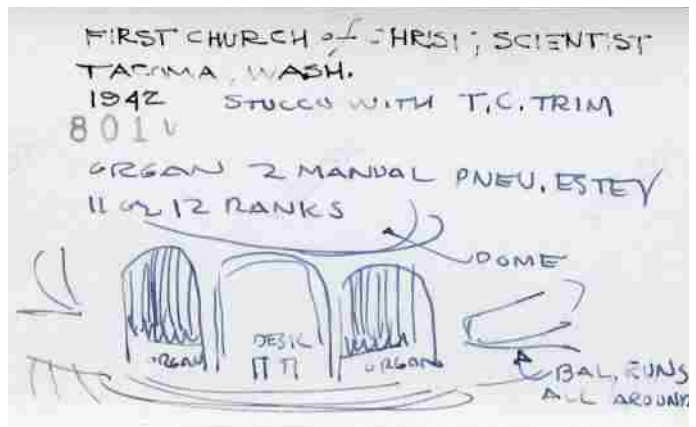 FIRST CHURCH of CHRIST, SCIENTIST
TACOMA, WASH.
1942 STUCCO WITH T.C. TRIM
801
ORGAN 2 MANUAL PNEU. ESTEY
11 or 12 RANKS
DOME
ORGAN
DESK
ORGAN
BAL. RUNS
ALL AROUND